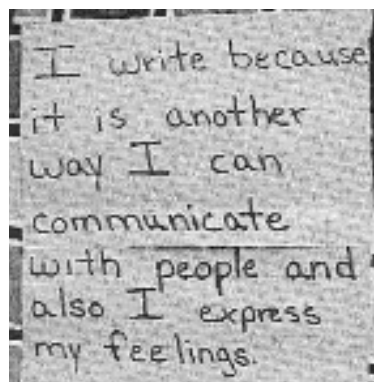 I write because
it is another
way I can
communicate
with people and
also I express
my feelings.